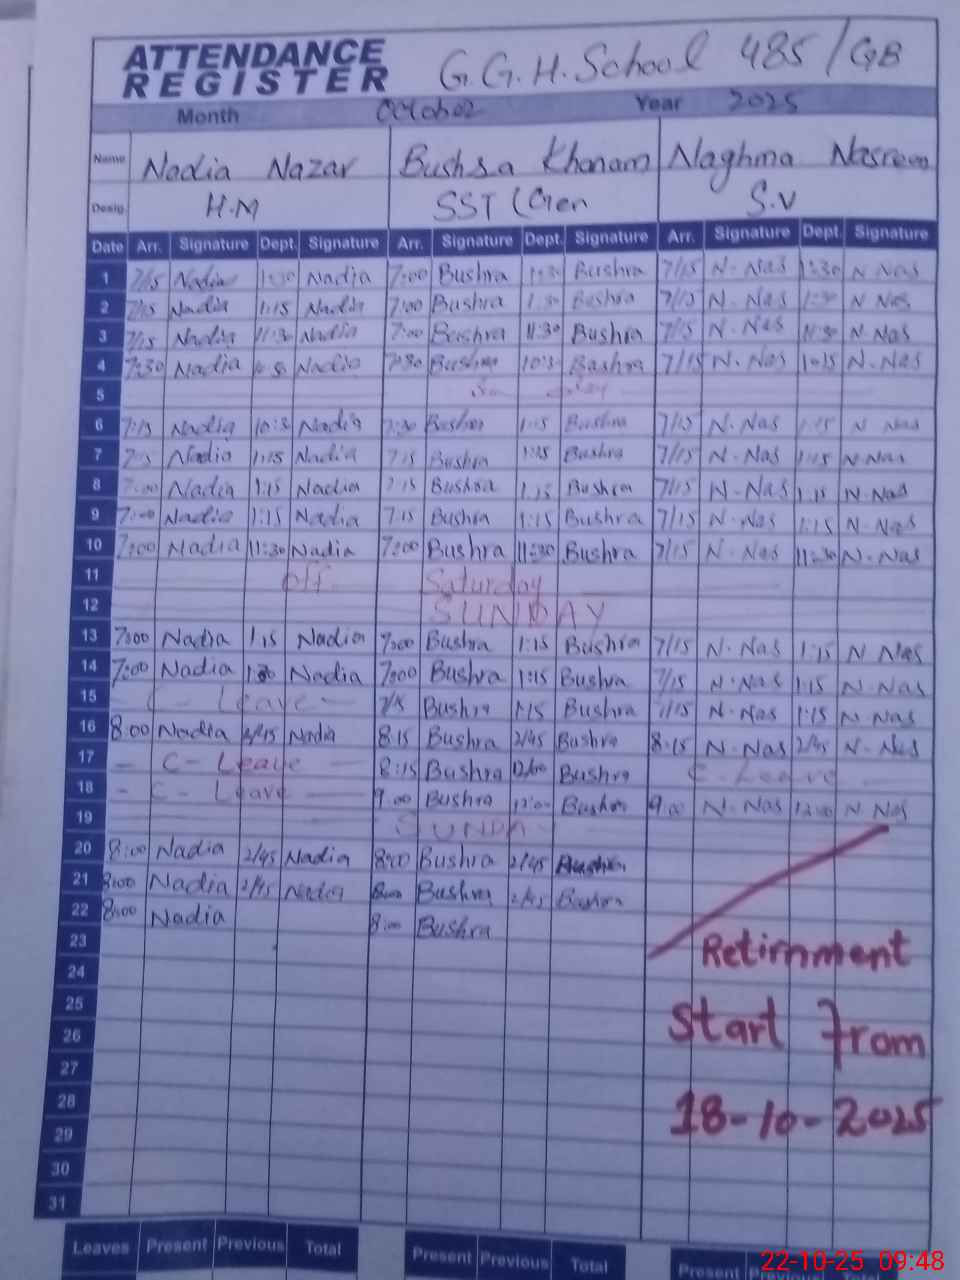 ATTENDANCE REGISTER G.G.H.School 485/GB
Month October Year 2025
Name Nadia Nazar Bushra Khanam Naghma Nasreen
Desig. H.M SST (Gen S.V
Date Arr. Signature Dept. Signature Arr. Signature Dept. Signature Arr. Signature Dept. Signature
1 7/15 Nadia 1:30 Nadia 7:00 Bushra 1:30 Bushra 7/15 N. Nas 1:30 N Nas
2 7/15 Nadia 1:15 Nadia 7:00 Bushra Bushra 7/15 N. Nas 1:30 N Nas
3 7/15 Nadia 11:30 Nadia 7:00 Bushra 11:30 Bushra 7/15 N. Nas 11:30 N. Nas
4 7:30 Nadia Nadia 7:30 Bushra 10:3 Bushra 7/15 N. Nas 10:15 N. Nas
5 Sun day
6 7:15 Nadia 10:3 Nadia 7:30 Bushra 1:15 Bushra 7/15 N. Nas 1:15 N Nas
7 Nadia 1:15 Nadia 7:15 Bushra 1:15 Bushra 7/15 N. Nas 1:15 N. Nas
8 7:00 Nadia 1:15 Nadia 7:15 Bushra 1:15 Bushra 7/15 N. Nas 1:15 N. Nas
9 7:00 Nadia 1:15 Nadia 7:15 Bushra 1:15 Bushra 7/15 N. Nas 1:15 N. Nas
10 7:00 Nadia 11:30 Nadia 7:00 Bushra 11:30 Bushra 7/15 N. Nas 11:30 N. Nas
11 off Saturday
12 SUNDAY
13 7:00 Nadia 1:15 Nadia 7:00 Bushra 1:15 Bushra 7/15 N. Nas 1:15 N Nas
14 7:00 Nadia 1:30 Nadia 7:00 Bushra 1:15 Bushra 7/15 N. Nas 1:15 N. Nas
15 C - Leave - 7/15 Bushra 1:15 Bushra 7/15 N. Nas 1:15 N. Nas
16 8:00 Nadia 2/45 Nadia 8:15 Bushra 2/45 Bushra 8:15 N. Nas 2/45 N. Nas
17 - C - Leave - 8:15 Bushra 12/00 Bushra C - Leave -
18 - C - Leave - 9:00 Bushra 12:00 Bushra 9:00 N. Nas 12:00 N. Nas
19 SUNDA
20 8:00 Nadia 2/45 Nadia 8:00 Bushra 2/45 Bushra
21 8:00 Nadia 2/45 Nadia 8:00 Bushra 2/45 Bushra
22 8:00 Nadia 8:00 Bushra
23 Retirnment
24
25 Start from
26
27
28 18-10-2025
29
30
31
Leaves Present Previous Total Present Previous Total Present Previous
22-10-25 09:48